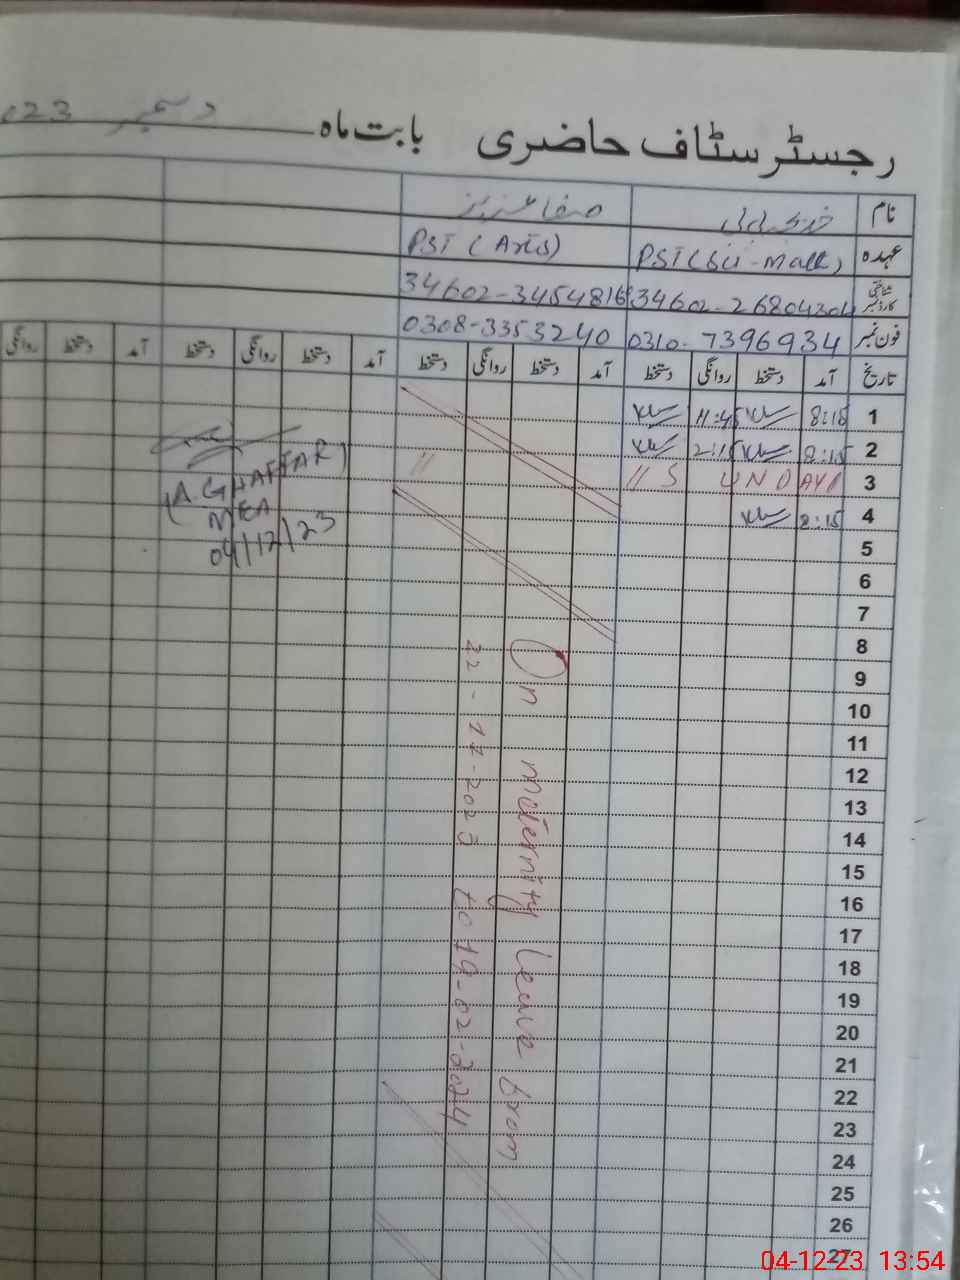 رجسٹر سٹاف حاضری بابت ماہ دسمبر 023
نام صفا عزیز
عہدہ PST (Sci-Math) PST (Arts)
شناختی کارڈ نمبر 34602-3454816
فون نمبر 0310-7396934 0308-3353240
تاریخ آمد دستخط روانگی دستخط آمد دستخط روانگی دستخط آمد دستخط روانگی دستخط آمد دستخط روانگی
1 8:15 11:45
2 8:15 2:15
3 SUNDAY // //
4 8:15
5
6
7
8
9
10
11
12
13
14
15
16
17
18
19
20
21
22
23
24
25
26
27
On maternity leave from
22-11-2023 to 19-02-2024
(A. GHAFFAR)
MEA
04/12/23
04-12-23 13:54